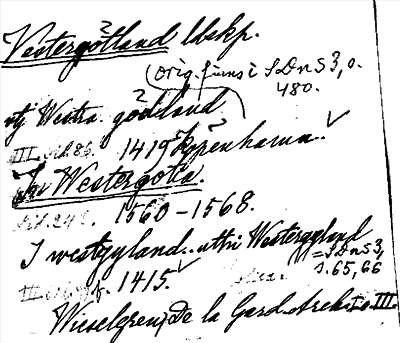 Vestergötland lbskp.
(orig. finns i SDns3, o.
480.
utj Westra götland
III. 1419 Köpenhamn.
In Westergotia.
1560-1568.
I westgyland.. uthi Westergyland
=SDns3,
s. 65, 66
III. 1415.
Wieselgren, De la Gard. Arch. I o. III.